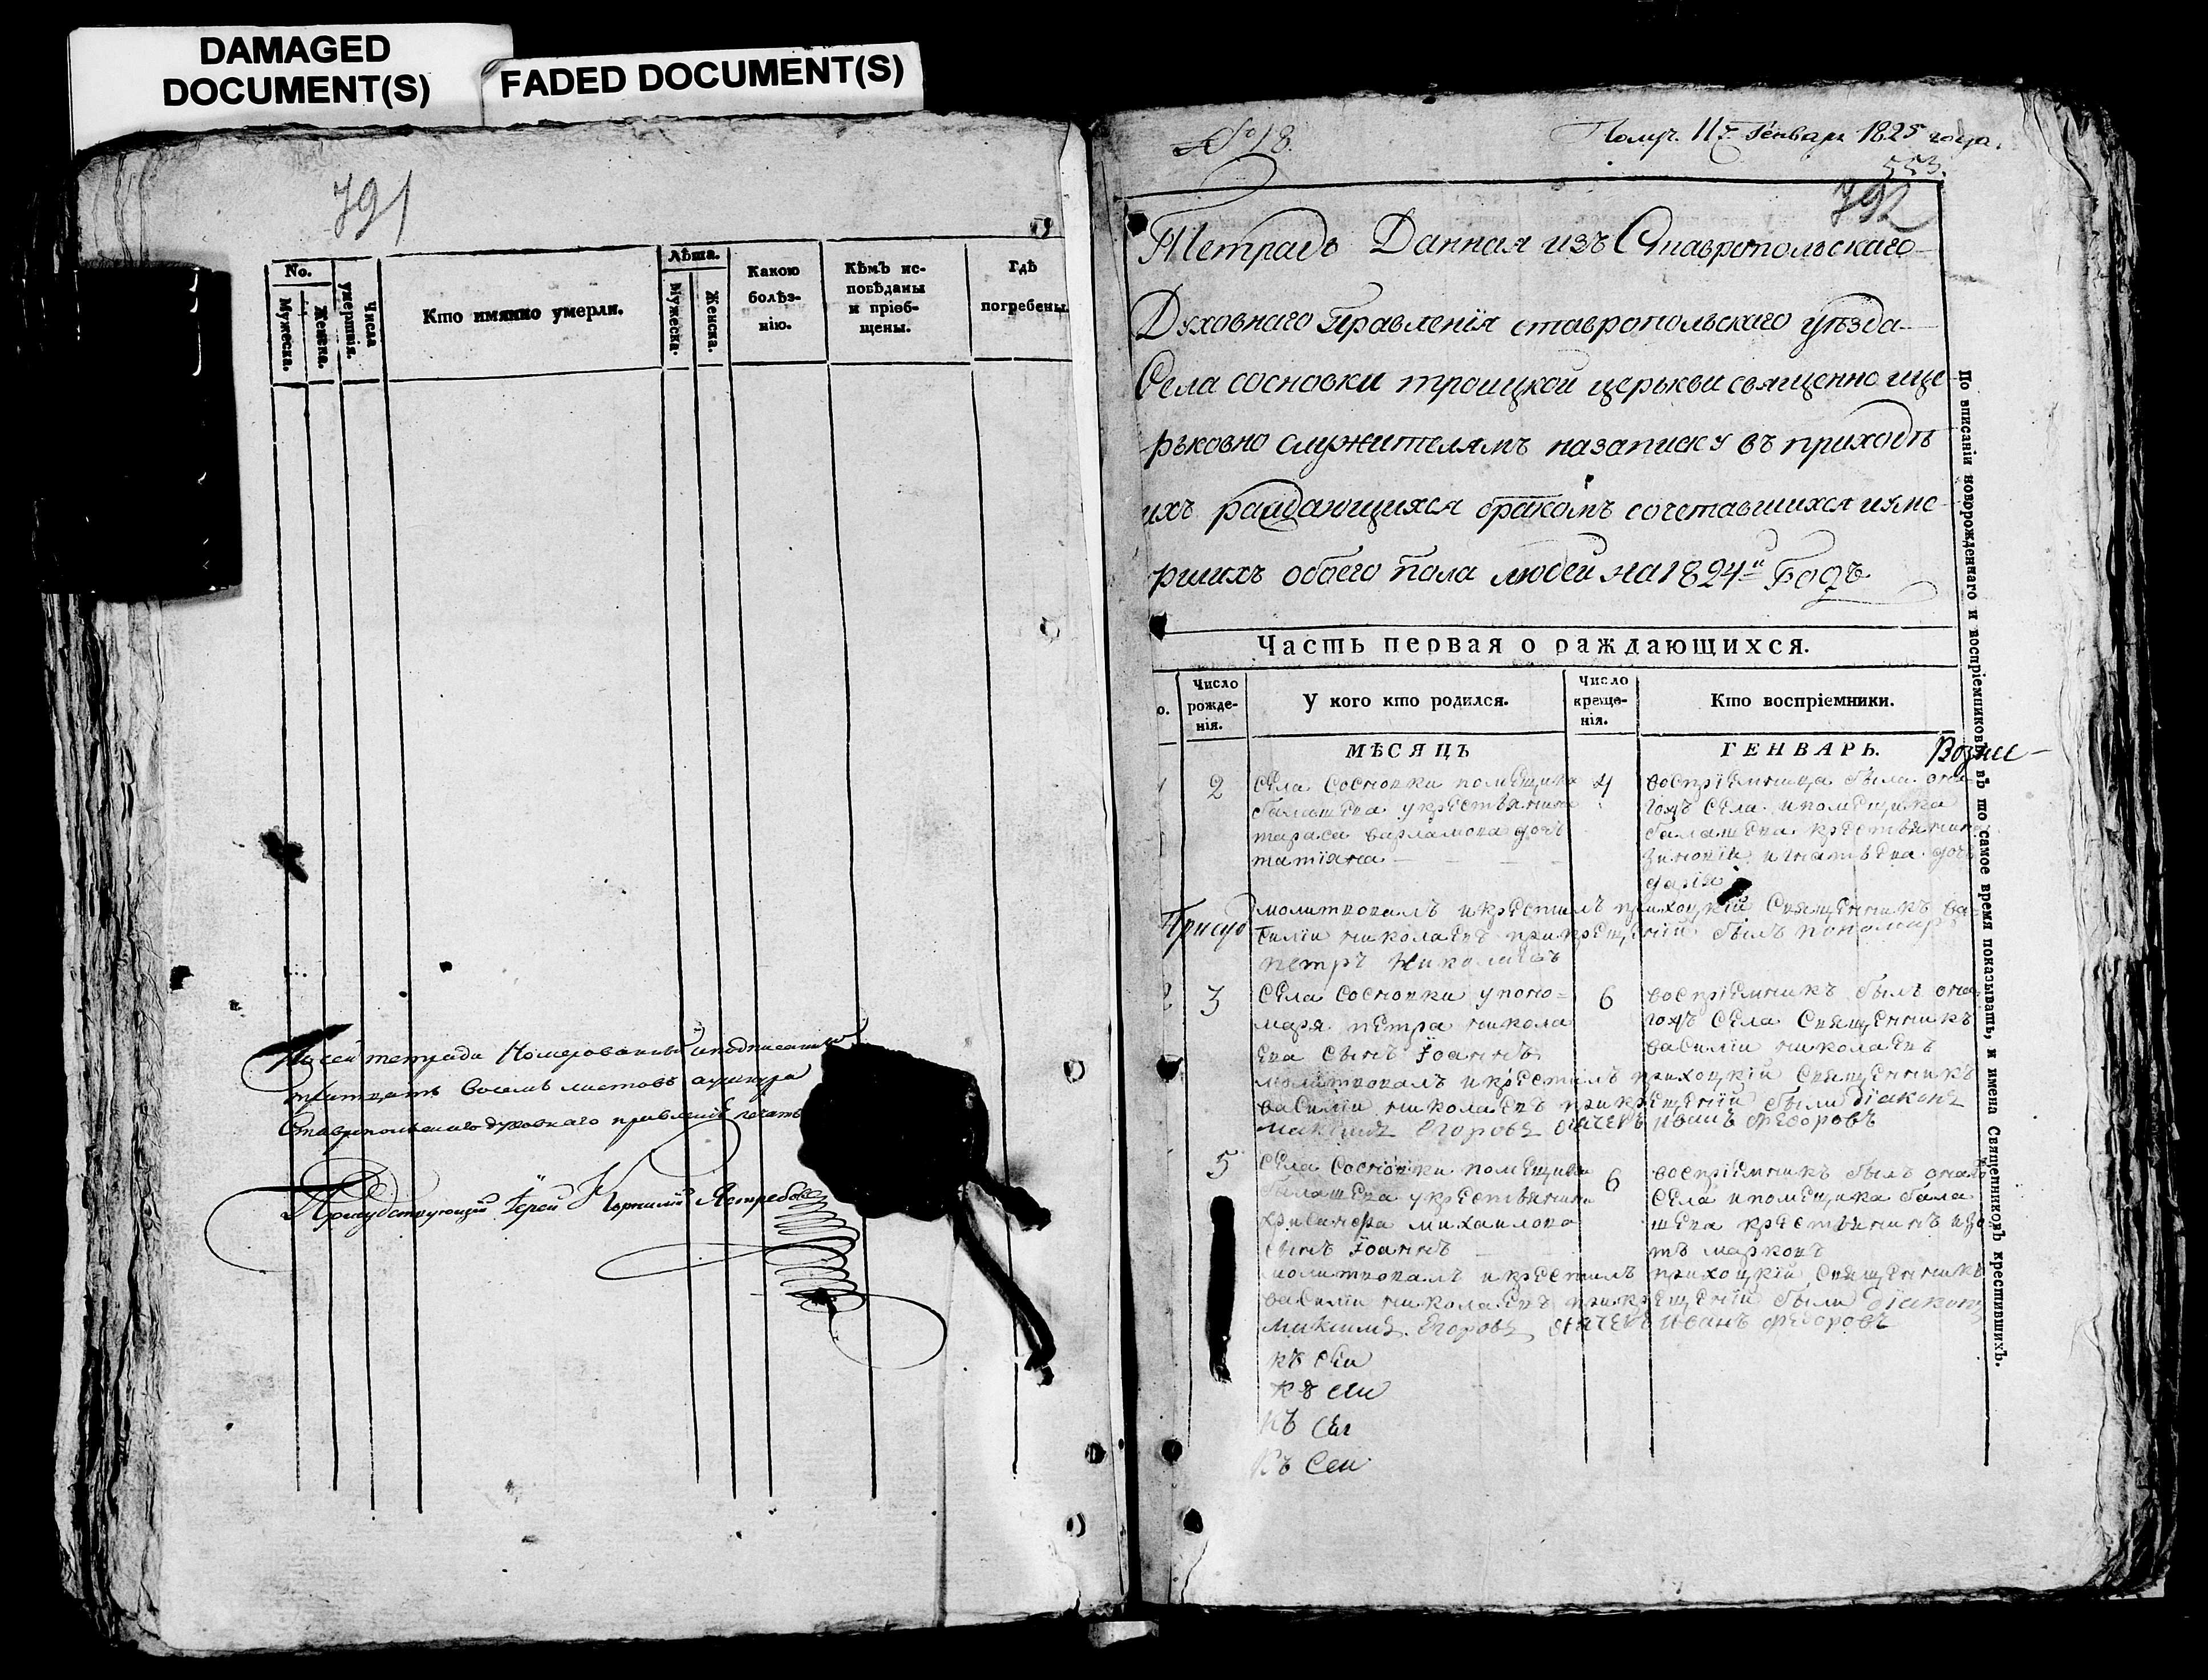 DAMAGED
DOCUMENT(S)
FADED DOCUMENT(S)
791
No.
Мужеска.
Женска.
Числа умертія.
Кто имянно умерли.
Лѣта.
Мужеска.
Женска.
Какою
болѣз-
нію.
Кѣмъ ис-
повѣданы
и пріоб-
щены.
Гдѣ
погребены.
сей тетради
тритцать восемь листовъ
Ставропольскаго духовнаго правленія печать
Присудствующій Іерей Корнилій Ястребовъ
№ 18.
Генваря 1825 года.
553.
792
Тетрадь Данная изъ Ставропольскаго
Духовнаго Правленія ставропольскаго уѣзда
Села сосновки троицкой церькви священно и це
рьковно служителямъ назаписку въ приходѣ
ихъ раждающихся бракомъ сочетавшихся и уме
ршихъ обоего пола людей на 1824й Годъ
Часть первая о раждающихся.
о.
Число
рожде-
нія.
У кого кто родился.
Число
креще-
нія.
Кто воспріемники.
МѢСЯЦЪ
ГЕНВАРЬ.
1
2
Села Сосновки помещика
балашева укрестьянина
тараса варламова дочь
татіяна
4
воспріемница была она
гожъ Села ипомещика
балашева крестьянина
зиновіи игнатьева дочь
дарія
молитвовалъ икрестилъ приходкій Священникъ ва
силіи николаевъ прикрещеніи былъ пономарь
петръ Николаевъ
Присуд
2
3
Села Сосновкиупоно=
маря петра никола
ева сынъ Іоаннъ
6
воспріемникъ былъ она
гожъ Села Священникъ
василіи николаевъ
молитвовалъ икрестилъ приходкій Священникъ
василіи николаевъ прикрещеніи были діаконъ
максимъ Егоровъ дьячекъ Иванъ Федоровъ
5
Села Сосновки помещика
балашева укрестьянина
михаилова
сынъ Іоаннъ
6
воспріемникъ былъ
Села ипомещика бала
шева крестьянинъ
марковъ
молитвовалъ икрестилъ приходкій Священникъ
василіи николаевъ прикрещеніи были діаконъ
максимъ Егоровъ дьячекъ Иванъ Федоровъ
къ сеи
къ сеи
къ сеи
Къ Сеи
По вписаніи новорожденнаго и воспріемниковъ въ то самое время показывать, и имена Священниковъ крестившихъ.